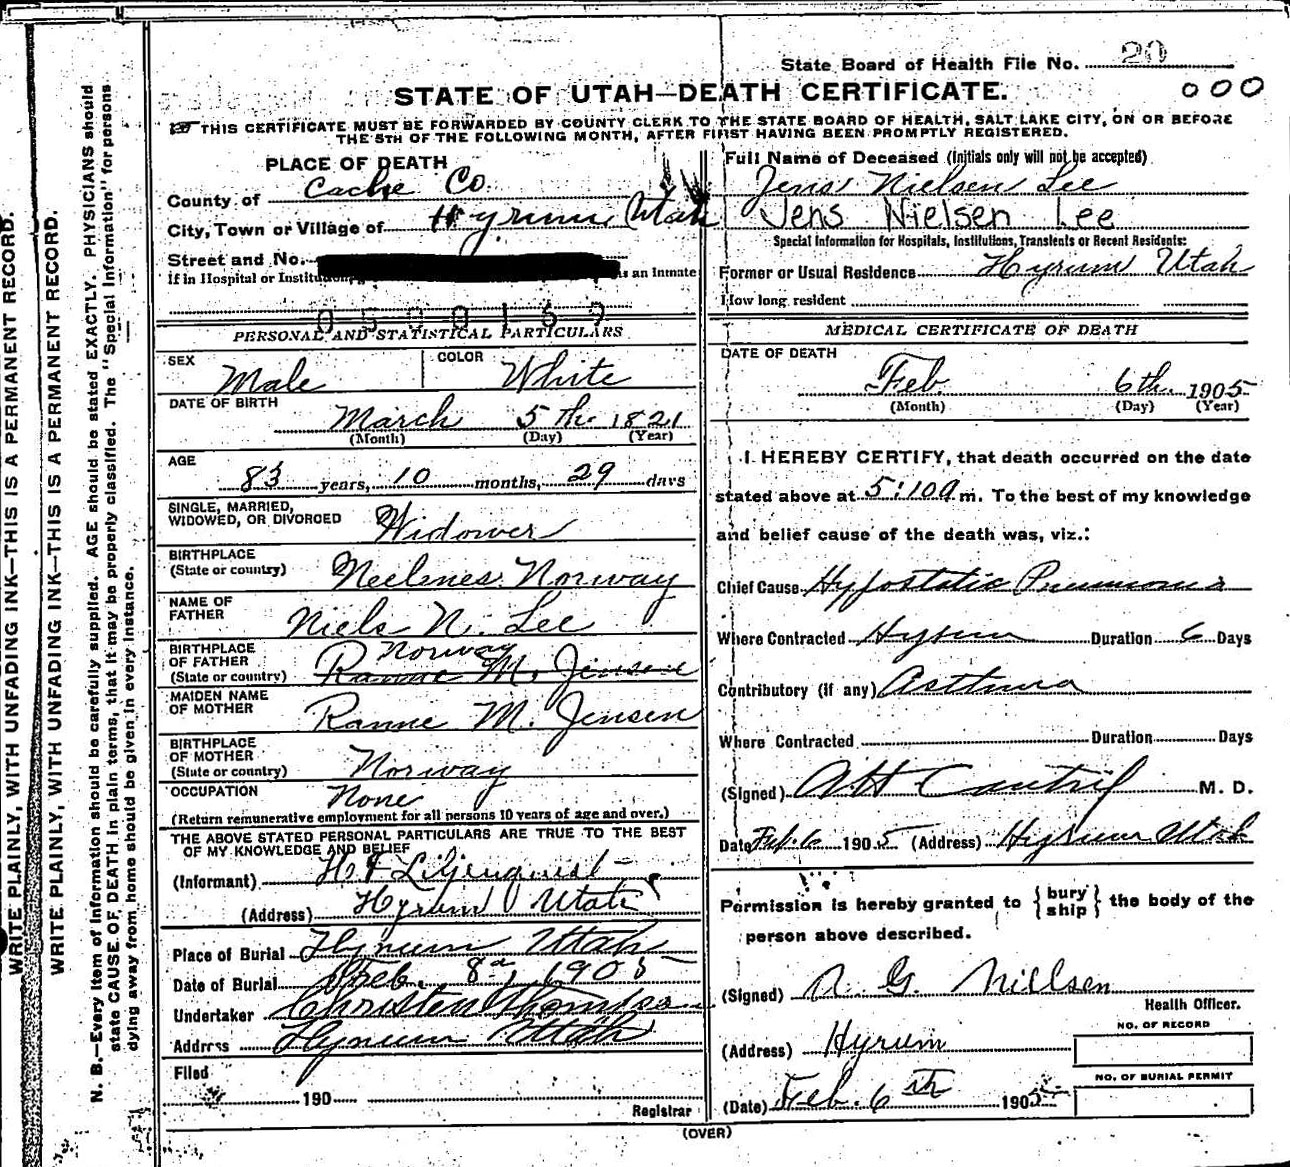 State Board of Health File No. 20
STATE OF UTAH—DEATH CERTIFICATE.
000
THIS CERTIFICATE MUST BE FORWARDED BY COUNTY CLERK TO THE STATE BOARD OF HEALTH, SALT LAKE CITY, ON OR BEFORE
THE 5TH OF THE FOLLOWING MONTH, AFTER FIRST HAVING BEEN PROMPTLY REGISTERED.
PLACE OF DEATH
County of Cache Co
City, Town or Village of Hyrum, Utah
Street and No.
If in Hospital or is an Inmate
PERSONAL AND STATISTICAL PARTICULARS
SEX Male COLOR White
DATE OF BIRTH
March 5th 1821
(Month) (Day) (Year)
AGE
83 years, 10 months, 29 days
SINGLE, MARRIED,
WIDOWED, OR DIVORCED Widower
BIRTHPLACE
(State or country) Norway
NAME OF
FATHER Niels N. Lee
BIRTHPLACE
OF FATHER Norway
(State or country) M. Jensen
MAIDEN NAME
OF MOTHER M. Jensen
BIRTHPLACE
OF MOTHER
(State or country) Norway
OCCUPATION None
(Return remunerative employment for all persons 10 years of age and over.)
THE ABOVE STATED PERSONAL PARTICULARS ARE TRUE TO THE BEST
OF MY KNOWLEDGE AND BELIEF
(Informant) H. F. Liljenquist
(Address) Hyrum Utah
Place of Burial Hyrum Utah
Date of Burial Feb. 8 1905
Undertaker Christen
Address Hyrum Utah
Filed
190
Registrar
Full Name of Deceased (Initials only will not be accepted)
Jens Nielsen Lee
Jens Nielsen Lee
Special Information for Hospitals, Institutions, Transients or Recent Residents:
Former or Usual Residence Hyrum Utah
How long resident
MEDICAL CERTIFICATE OF DEATH
DATE OF DEATH
Feb. 6th 1905
(Month) (Day) (Year)
I HEREBY CERTIFY, that death occurred on the date
stated above at 5:10 a m. To the best of my knowledge
and belief cause of the death was, viz.:
Chief Cause Hypostatic Pneumonia
Where Contracted Hyrum Duration 6 Days
Contributory (if any) Asthma
Where Contracted Duration Days
(Signed) Cantril M. D.
Date Feb. 6 1905 (Address) Hyrum Utah
Permission is hereby granted to { bury ship } the body of the
person above described.
(Signed) N. G. Nillsen
Health Officer.
NO. OF RECORD
(Address) Hyrum
NO. OF BURIAL PERMIT
(Date) Feb. 6th 1905
(OVER)
WRITE PLAINLY, WITH UNFADING INK—THIS IS A PERMANENT RECORD.
WRITE PLAINLY, WITH UNFADING INK—THIS IS A PERMANENT RECORD.
N. B.—Every item of information should be carefully supplied. AGE should be stated EXACTLY. PHYSICIANS should
state CAUSE OF DEATH in plain terms, that it may be properly classified. The "Special Information" for persons
dying away from home should be given in every instance.